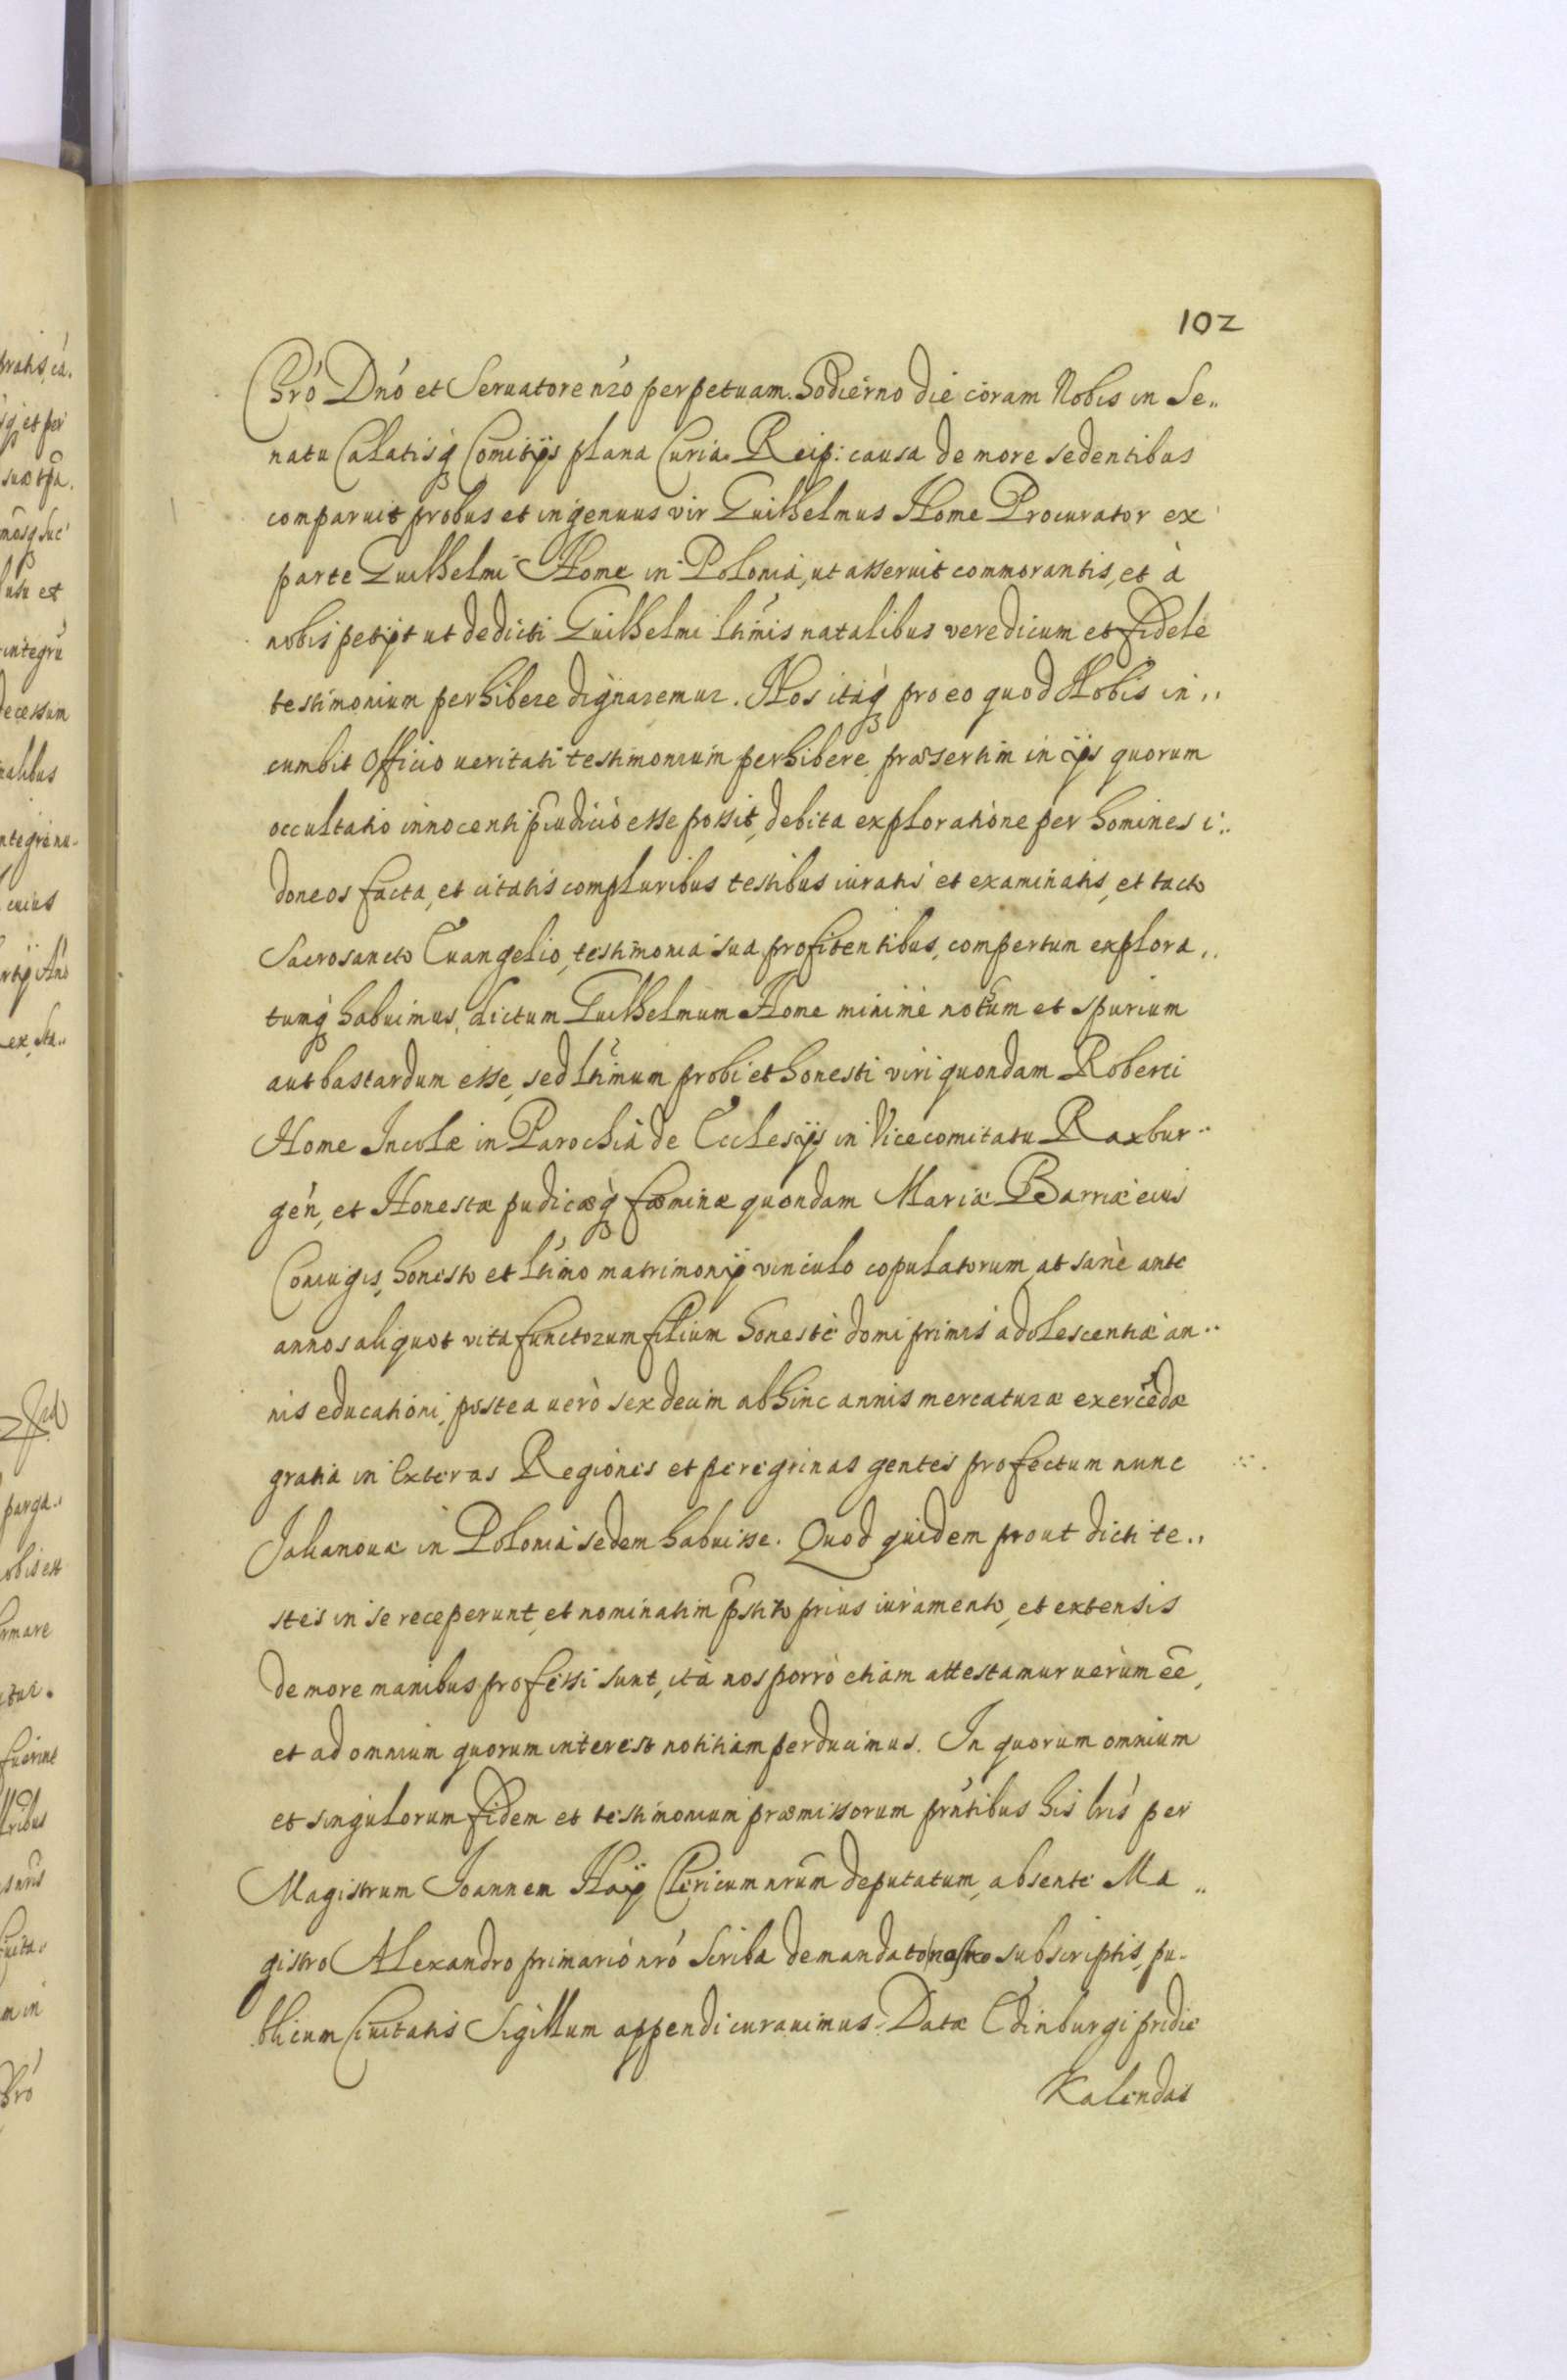 102
Chró Dnó et Seruatore nró perpetuam. Hodierno die coram Nobis in Se..
natu Calatisq Comitijs plana Curia Reip: causa de more sedentibus
comparuit probus et ingenuus vir Guilhelmus Home Procurator ex
parte Guilhelmi Home in Polonia, ut asseruit commorantis, et à
nobis petijt ut de dicti Guilhelmi ltimis natalibus veredicum et fidele
testimonium perhibere dignaremur. Nos itaq pro eo quod Nobis in..
cumbit Officio ueritati testimonium perhibere præsertim in ijs quorum
occultatio innocenti pиudicio esse possit, debita exploratione per homines i..
doneos facta, et citatis compluribus testibus iuratis et examinatis, et tacto
Sacrosancto Euangelio, testimonia sua profitentibus, compertum explora..
tumq habuimus, dictum Guilhelmum Home minime nothum et spurium
aut bastardum esse, sed ltimum probi et honesti viri quondam Roberti
Home Incolæ in Parochia de Ecclesijs in Vicecomitatu Raxbur..
gén, et Honestæ pudicæq fœminæ quondam Mariæ Barriæ eius
Coniugis, honesto et ltimo matrimonij vinculo copulatorum, at sanè ante
annos aliquot vita functorum filium honestè domi primis adolescentiæ an..
nis educationi, postea uerò sexdecim abhinc annis mercaturæ exercẽdæ
gratia in Exteras Regiones et peregrinas gentes profectum nunc
Jalianouæ in Polonia sedem habuisse. Quod quidem prout dicti te..
stes in se receperunt, et nominatim pstito prius iuramento, et extensis
de more manibus professi sunt, ità nos porrò etiam attestamur uerùm ẽe,
et ad omnium quorum interest notitiam perducimus. In quorum omnium
et singulorum fidem et testimonium præmissorum prñtibus his lris per
Magistrum Joannem Haÿ Clericum nrũm deputatum, absente Ma..
gistro Alexandro primario nró Scriba de mandato nostro subscriptis, pu-
blicum Ciuitatis Sigillum appendi curauimus. Datæ Edinburgi pridie
Kalendas